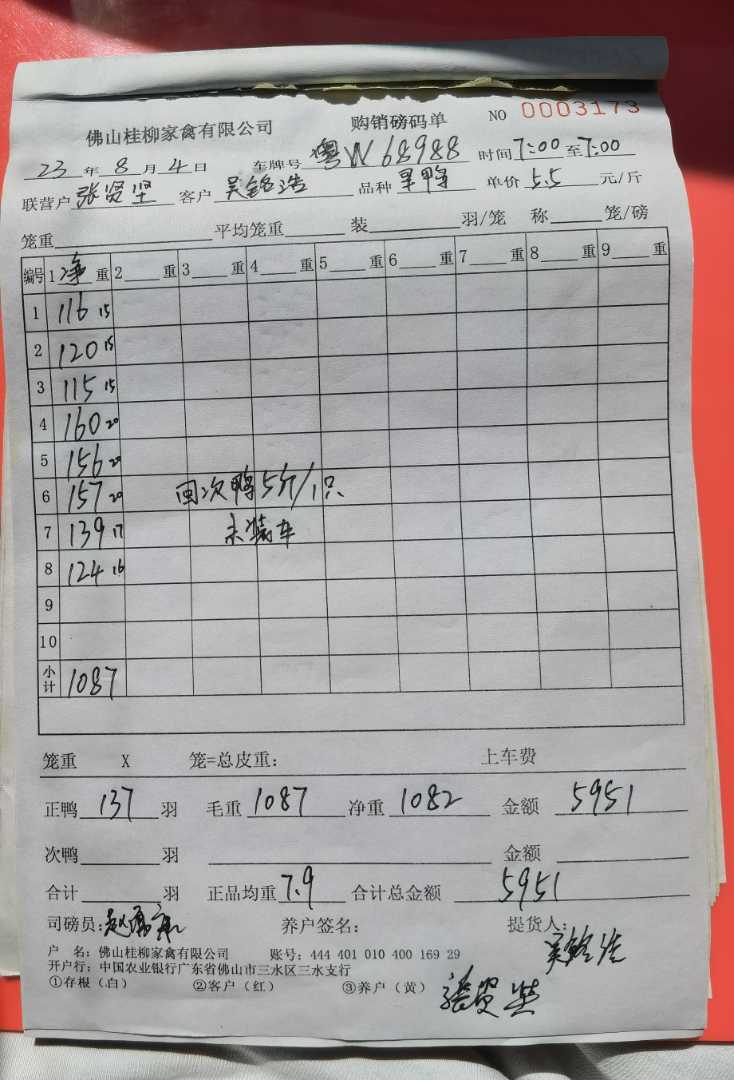 佛山桂柳家禽有限公司 购销磅码单 NO 0003173
23 年 8 月 4 日 车牌号 粤W68988 时间 7:00 至 7:00
联营户 张贤坚 客户 吴铭浩 品种 旱鸭 单价 5.5 元/斤
笼重 平均笼重 装 羽/笼 称 笼/磅
编号 1 净 重 2 重 3 重 4 重 5 重 6 重 7 重 8 重 9 重
1 116 15
2 120 15
3 115 15
4 160 20
5 156 20
6 157 20 次鸭5斤/1只
7 139 17 未装车
8 124 16
9
10
小计 1087
笼重 X 笼=总皮重: 上车费
正鸭 137 羽 毛重 1087 净重 1082 金额 5951
次鸭 羽 金额
合计 羽 正品均重 7.9 合计总金额 5951
司磅员: 养户签名: 提货人: 吴铭浩
户 名: 佛山桂柳家禽有限公司 账号: 444 401 010 400 169 29
开户行: 中国农业银行广东省佛山市三水区三水支行
①存根(白) ②客户(红) ③养户(黄) 張贤坚